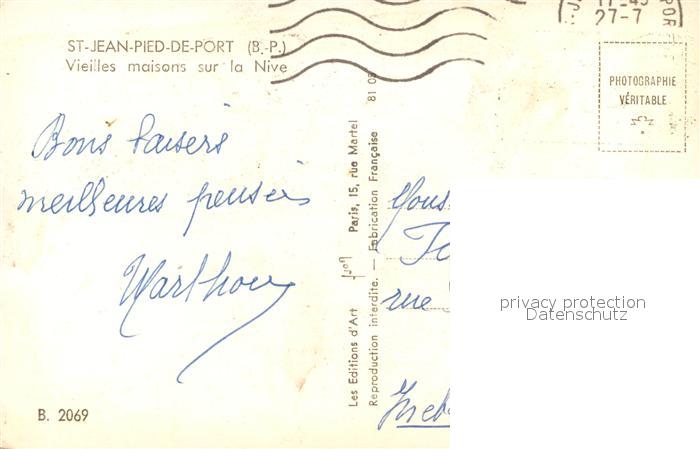 ST-JEAN-PIED-DE-PORT (B.-P.)
Vieilles maisons sur la Nive
27-7
PHOTOGRAPHIE
VÉRITABLE
Bons baisers
meilleures pensées
Les Editions d'Art Yvon Paris, 15, rue Martel
Reproduction interdite. — Fabrication Française
rue
B. 2069
privacy protection
Datenschutz